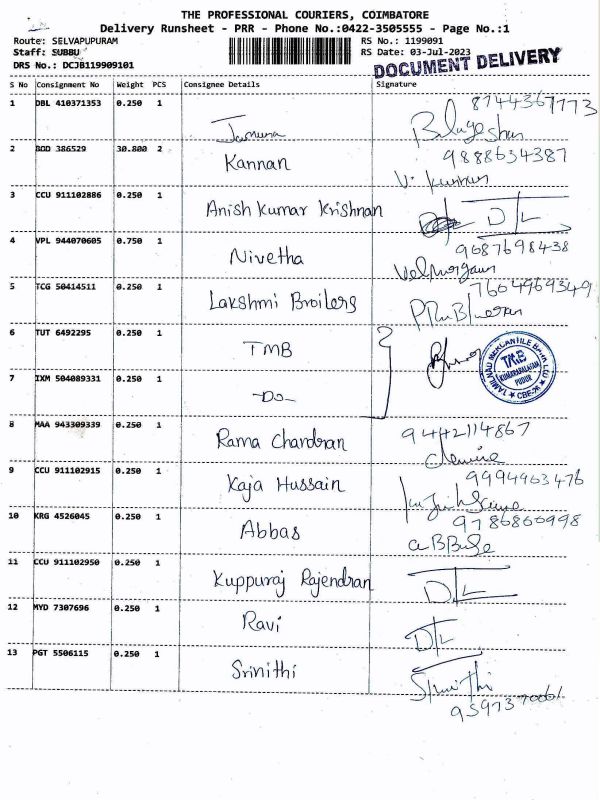 THE PROFESSIONAL COURIERS, COIMBATORE
Delivery Runsheet - PRR - Phone No.:0422-3505555 - Page No.:1
Route: SELVAPUPURAM RS No.: 1199091
Staff: SUBBU RS Date: 03-Jul-2023
DRS No.: DCJB119909101 DOCUMENT DELIVERY
S No Consignment No Weight PCS Consignee Details Signature
1 DBL 410371353 0.250 1 8744367773
Jamuna Balugeshan
2 BOD 386529 30.800 2 9888634387
Kannan V. Kannan
3 CCU 911102886 0.250 1
Anish Kumar Krishnan D/L
4 VPL 944070605 0.750 1 9687698438
Nivetha Velmorgann
5 TCG 50414511 0.250 1 7664969349
Lakshmi Broilers
6 TUT 6492295 0.250 1
TMB
TAMILNAD MERCANTILE BANK LTD
TMB
KUMARAPALAYAM
PUDUR
CBE-26
7 IXM 504089331 0.250 1
-Do-
8 MAA 943309339 0.250 1 9442114867
Rama Chandran
9 CCU 911102915 0.250 1 9994963476
Kaja Hussain
10 KRG 4526045 0.250 1 9786860998
Abbas
11 CCU 911102950 0.250 1
Kuppuraj Rajendran D/L
12 MYD 7307696 0.250 1
Ravi D/L
13 PGT 5506115 0.250 1
Srinithi Srinithi